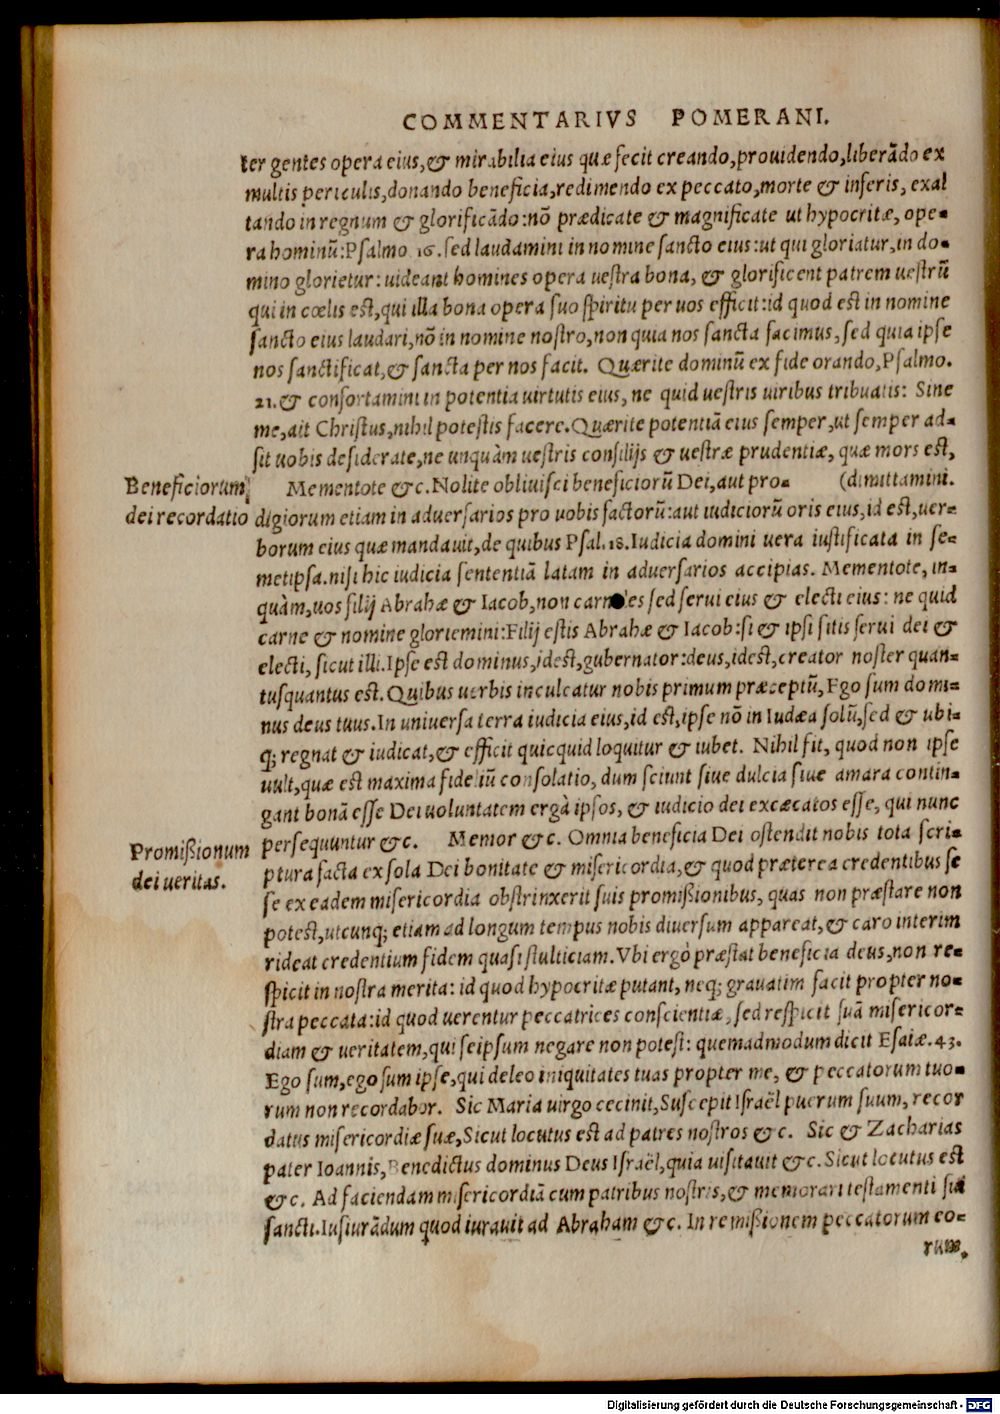 COMMENTARIVS POMERANI.
ter gentes opera eius,& mirabilia eius quæ fecit creando,prouidendo,liberādo ex
multis periculis,donando beneficia,redimendo ex peccato,morte & inferis, exal
tando in regnum & glorificādo:nō prædicate & magnificate ut hypocritæ, ope-
ra hominū:Psalmo 16.sed laudamini in nomine sancto eius:ut qui gloriatur,in do-
mino glorietur: uideant homines opera uestra bona, & glorificent patrem uestrū
qui in cœlis est,qui illa bona opera suo spiritu per uos efficit:id quod est in nomine
sancto eius laudari,nō in nomine nostro,non quia nos sancta facimus,sed quia ipse
nos sanctificat,& sancta per nos facit. Quærite dominū ex fide orando,Psalmo.
21.& confortamini in potentia uirtutis eius, ne quid uestris uiribus tribuatis: Sine
me,ait Christus,nihil potestis facere.Quærite potentiā eius semper,ut semper ad-
sit uobis desiderate,ne unquàm uestris consilijs & uestræ prudentiæ, quæ mors est,
Beneficiorum
dei recordatio
Mementote &c.Nolite obliuisci beneficiorū Dei,aut pro- (dimittamini.
digiorum etiam in aduersarios pro uobis factorū:aut iudiciorū oris eius,id est,uer-
borum eius quæ mandauit,de quibus Psal.18.Iudicia domini uera iustificata in se-
metipsa.nisi hic iudicia sententiā latam in aduersarios accipias. Mementote, in-
quàm,uos filij Abrahæ & Iacob,non carnales sed serui eius & electi eius: ne quid
carne & nomine gloriemini:Filij estis Abrahæ & Iacob:si & ipsi sitis serui dei &
electi, sicut illi.Ipse est dominus,idest,gubernator:deus,idest,creator noster quan-
tusquantus est.Quibus uerbis inculcatur nobis primum præceptū,Ego sum domi-
nus deus tuus.In uniuersa terra iudicia eius,id est,ipse nō in Iudæa solū,sed & ubi-
q; regnat & iudicat,& efficit quicquid loquitur & iubet. Nihil fit, quod non ipse
uult,quæ est maxima fideliū consolatio, dum sciunt siue dulcia siue amara contin-
gant bonā esse Dei uoluntatem ergà ipsos, & iudicio dei excæcatos esse, qui nunc
persequuntur &c. Memor &c. Omnia beneficia Dei ostendit nobis tota scri-
Promißionum
dei ueritas.
ptura facta ex sola Dei bonitate & misericordia,& quod præterea credentibus se
se ex eadem misericordia obstrinxerit suis promißionibus, quas non præstare non
potest,utcunq; etiam ad longum tempus nobis diuersum appareat,& caro interim
rideat credentium fidem quasi stulticiam.Vbi ergò præstat beneficia deus,non re-
spicit in nostra merita: id quod hypocritæ putant, neq; grauatim facit propter no-
stra peccata:id quod uerentur peccatrices conscientiæ, sed respicit suā misericor-
diam & ueritatem,qui seipsum negare non potest: quemadmodum dicit Esaiæ.43.
Ego sum,ego sum ipse,qui deleo iniquitates tuas propter me, & peccatorum tuo-
rum non recordabor. Sic Maria uirgo cecinit,Suscepit Israël puerum suum, recor
datus misericordiæ suæ,Sicut locutus est ad patres nostros &c. Sic & Zacharias
pater Ioannis,Benedictus dominus Deus Israël,quia uisitauit &c.Sicut locutus est
&c. Ad faciendam misericordiā cum patribus nostris,& memorari testamenti sui
sancti.Iusiurādum quod iurauit ad Abraham &c. In remißionem peccatorum eo-
rum.
Digitalisierung gefördert durch die Deutsche Forschungsgemeinschaft - DFG